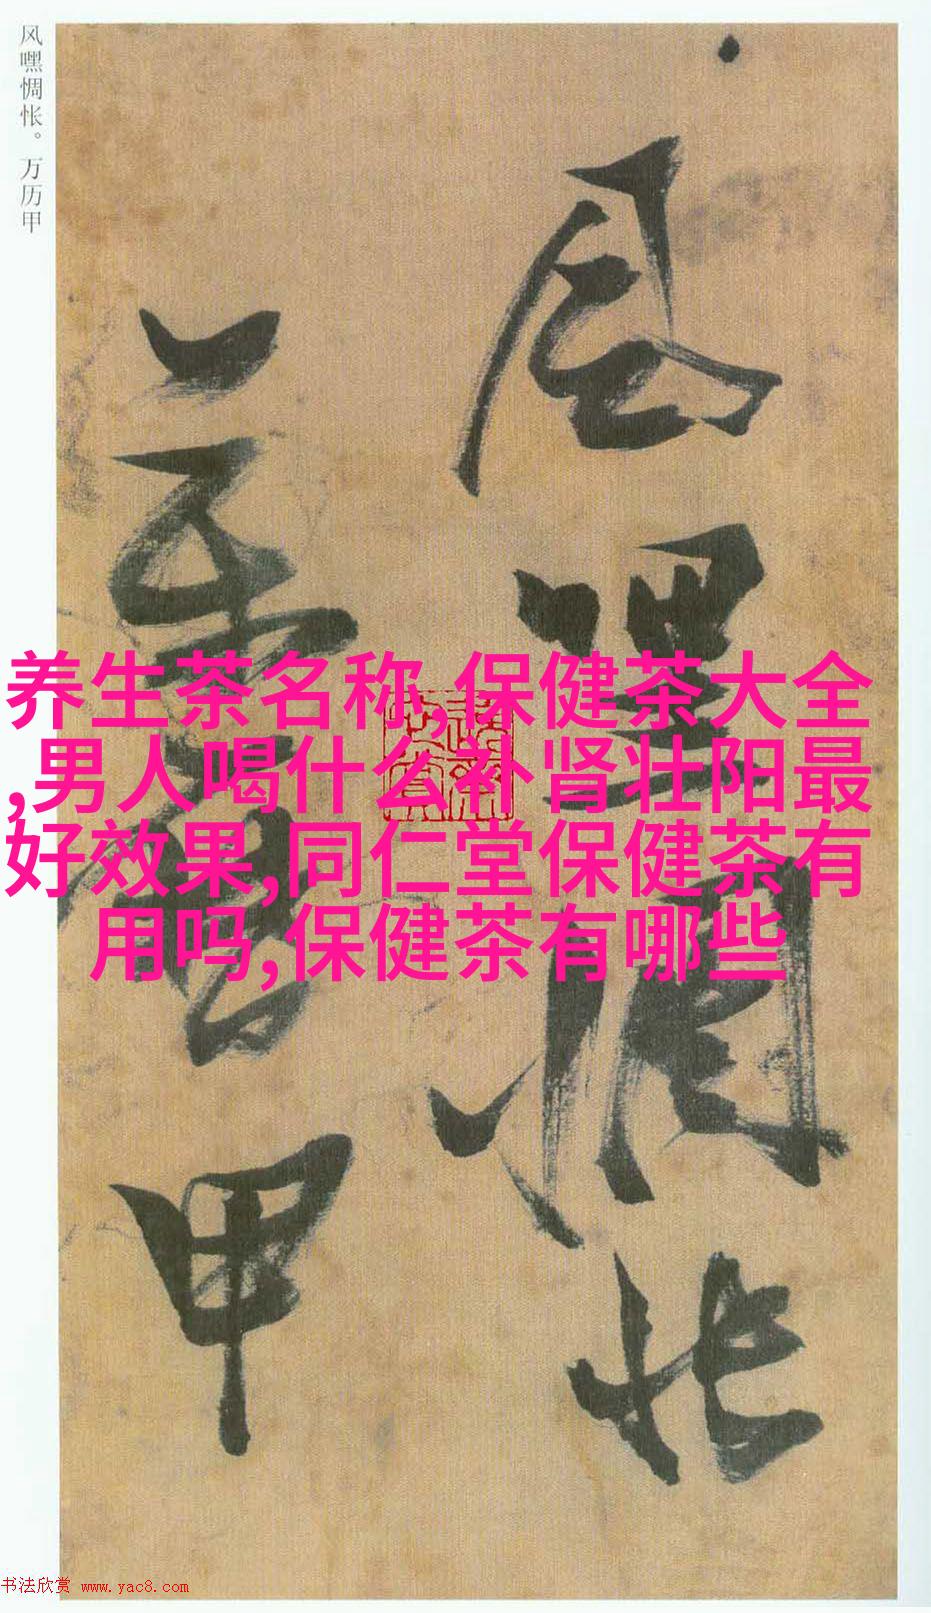 风嘿惆怅。万历甲
风嘿惆怅
万历甲
养生茶名称,保健茶大全
,男人喝什么补肾壮阳最
好效果,同仁堂保健茶有
用吗,保健茶有哪些
书法欣赏 www.yac8.com